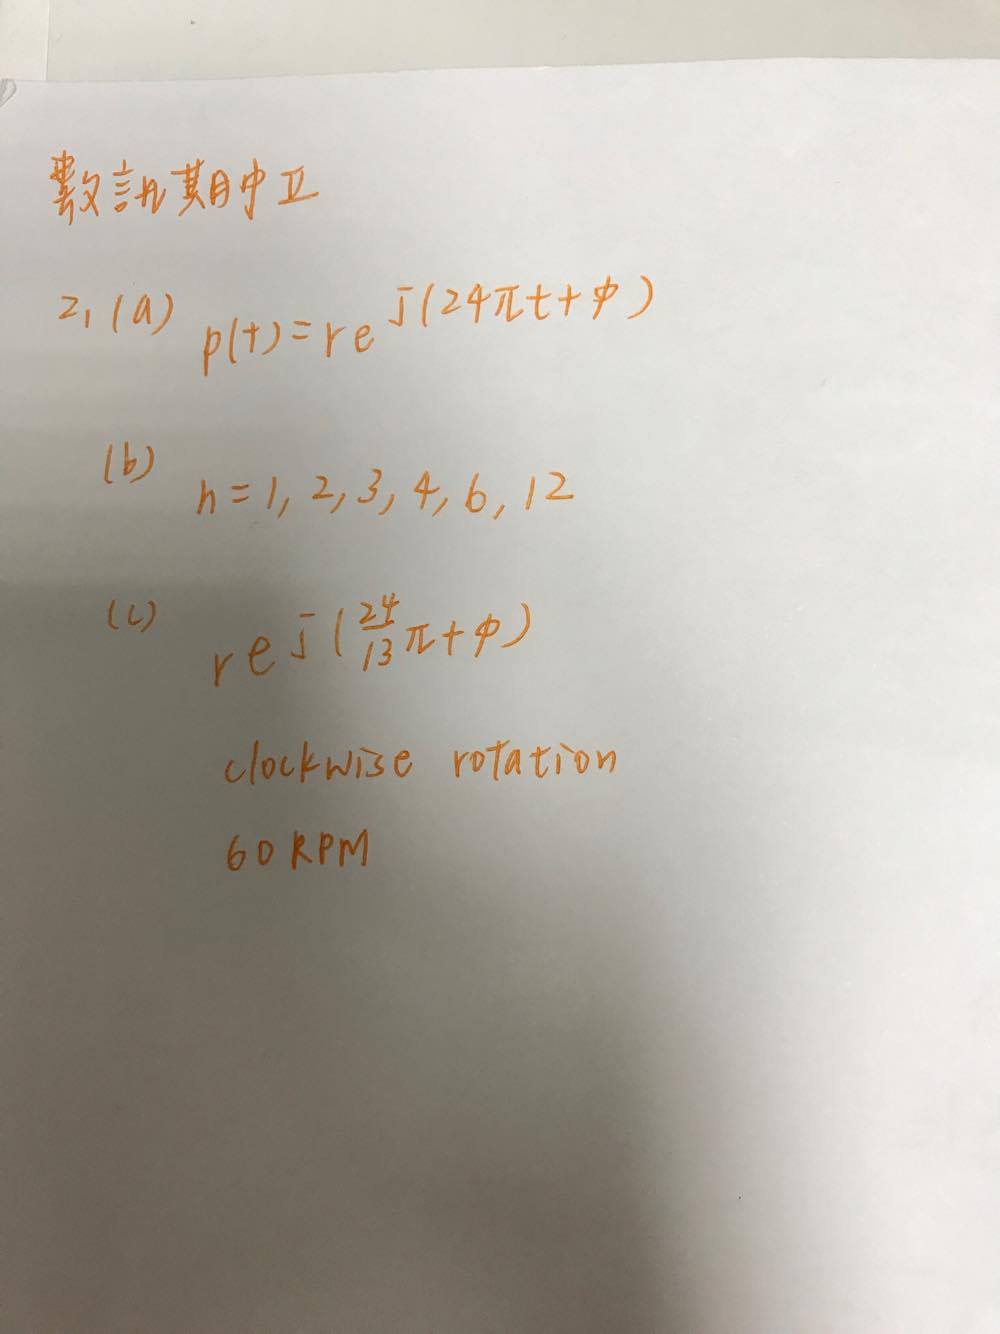 數訊期中II
2,(a) p(t)=re^j(24πt+φ)
(b) n=1,2,3,4,6,12
(c) re^j(24/13π+φ)
clockwise rotation
60RPM